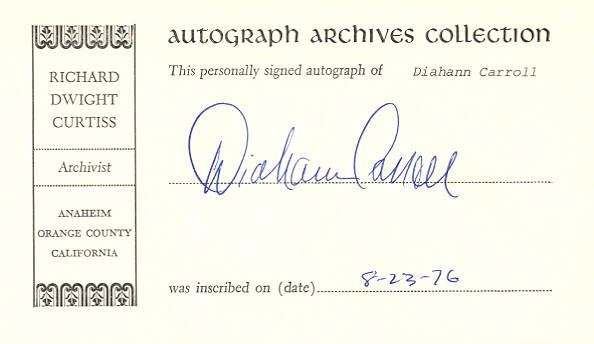 RICHARD
DWIGHT
CURTISS
Archivist
ANAHEIM
ORANGE COUNTY
CALIFORNIA
AUTOGRAPH ARCHIVES COLLECTION
This personally signed autograph of Diahann Carroll
Diahann Carroll
was inscribed on (date) 8-23-76